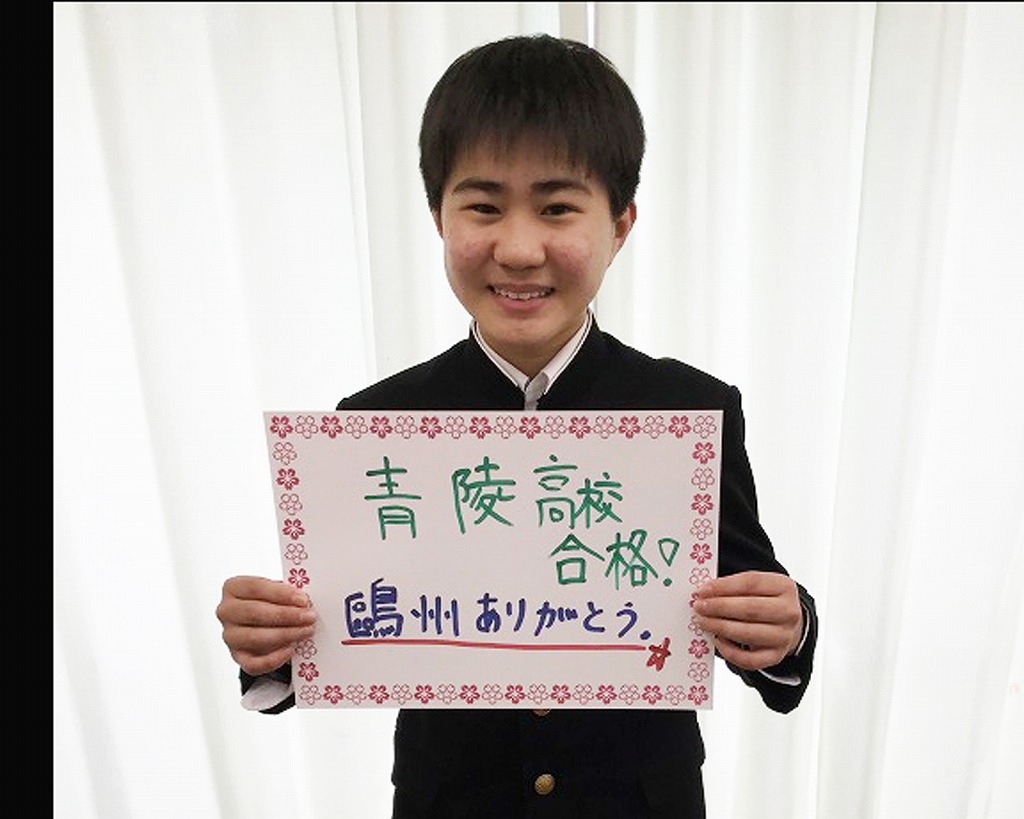 青陵高校
合格!
鷗州ありがとう。